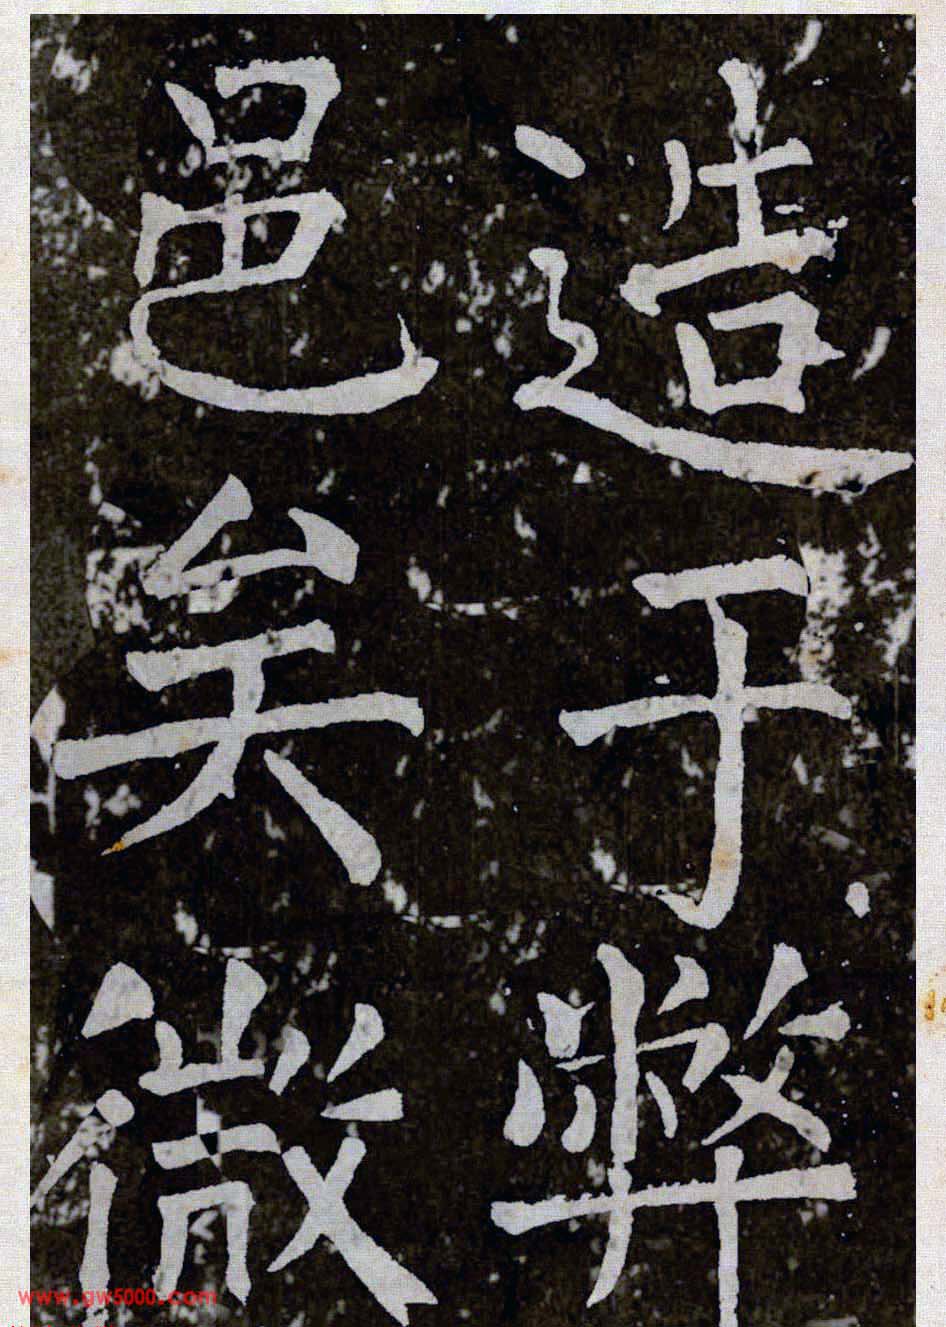 造于弊
邑矣微
www.gw5000.com